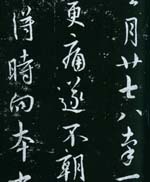 月廿七八
更痛遂不朝
得時向本